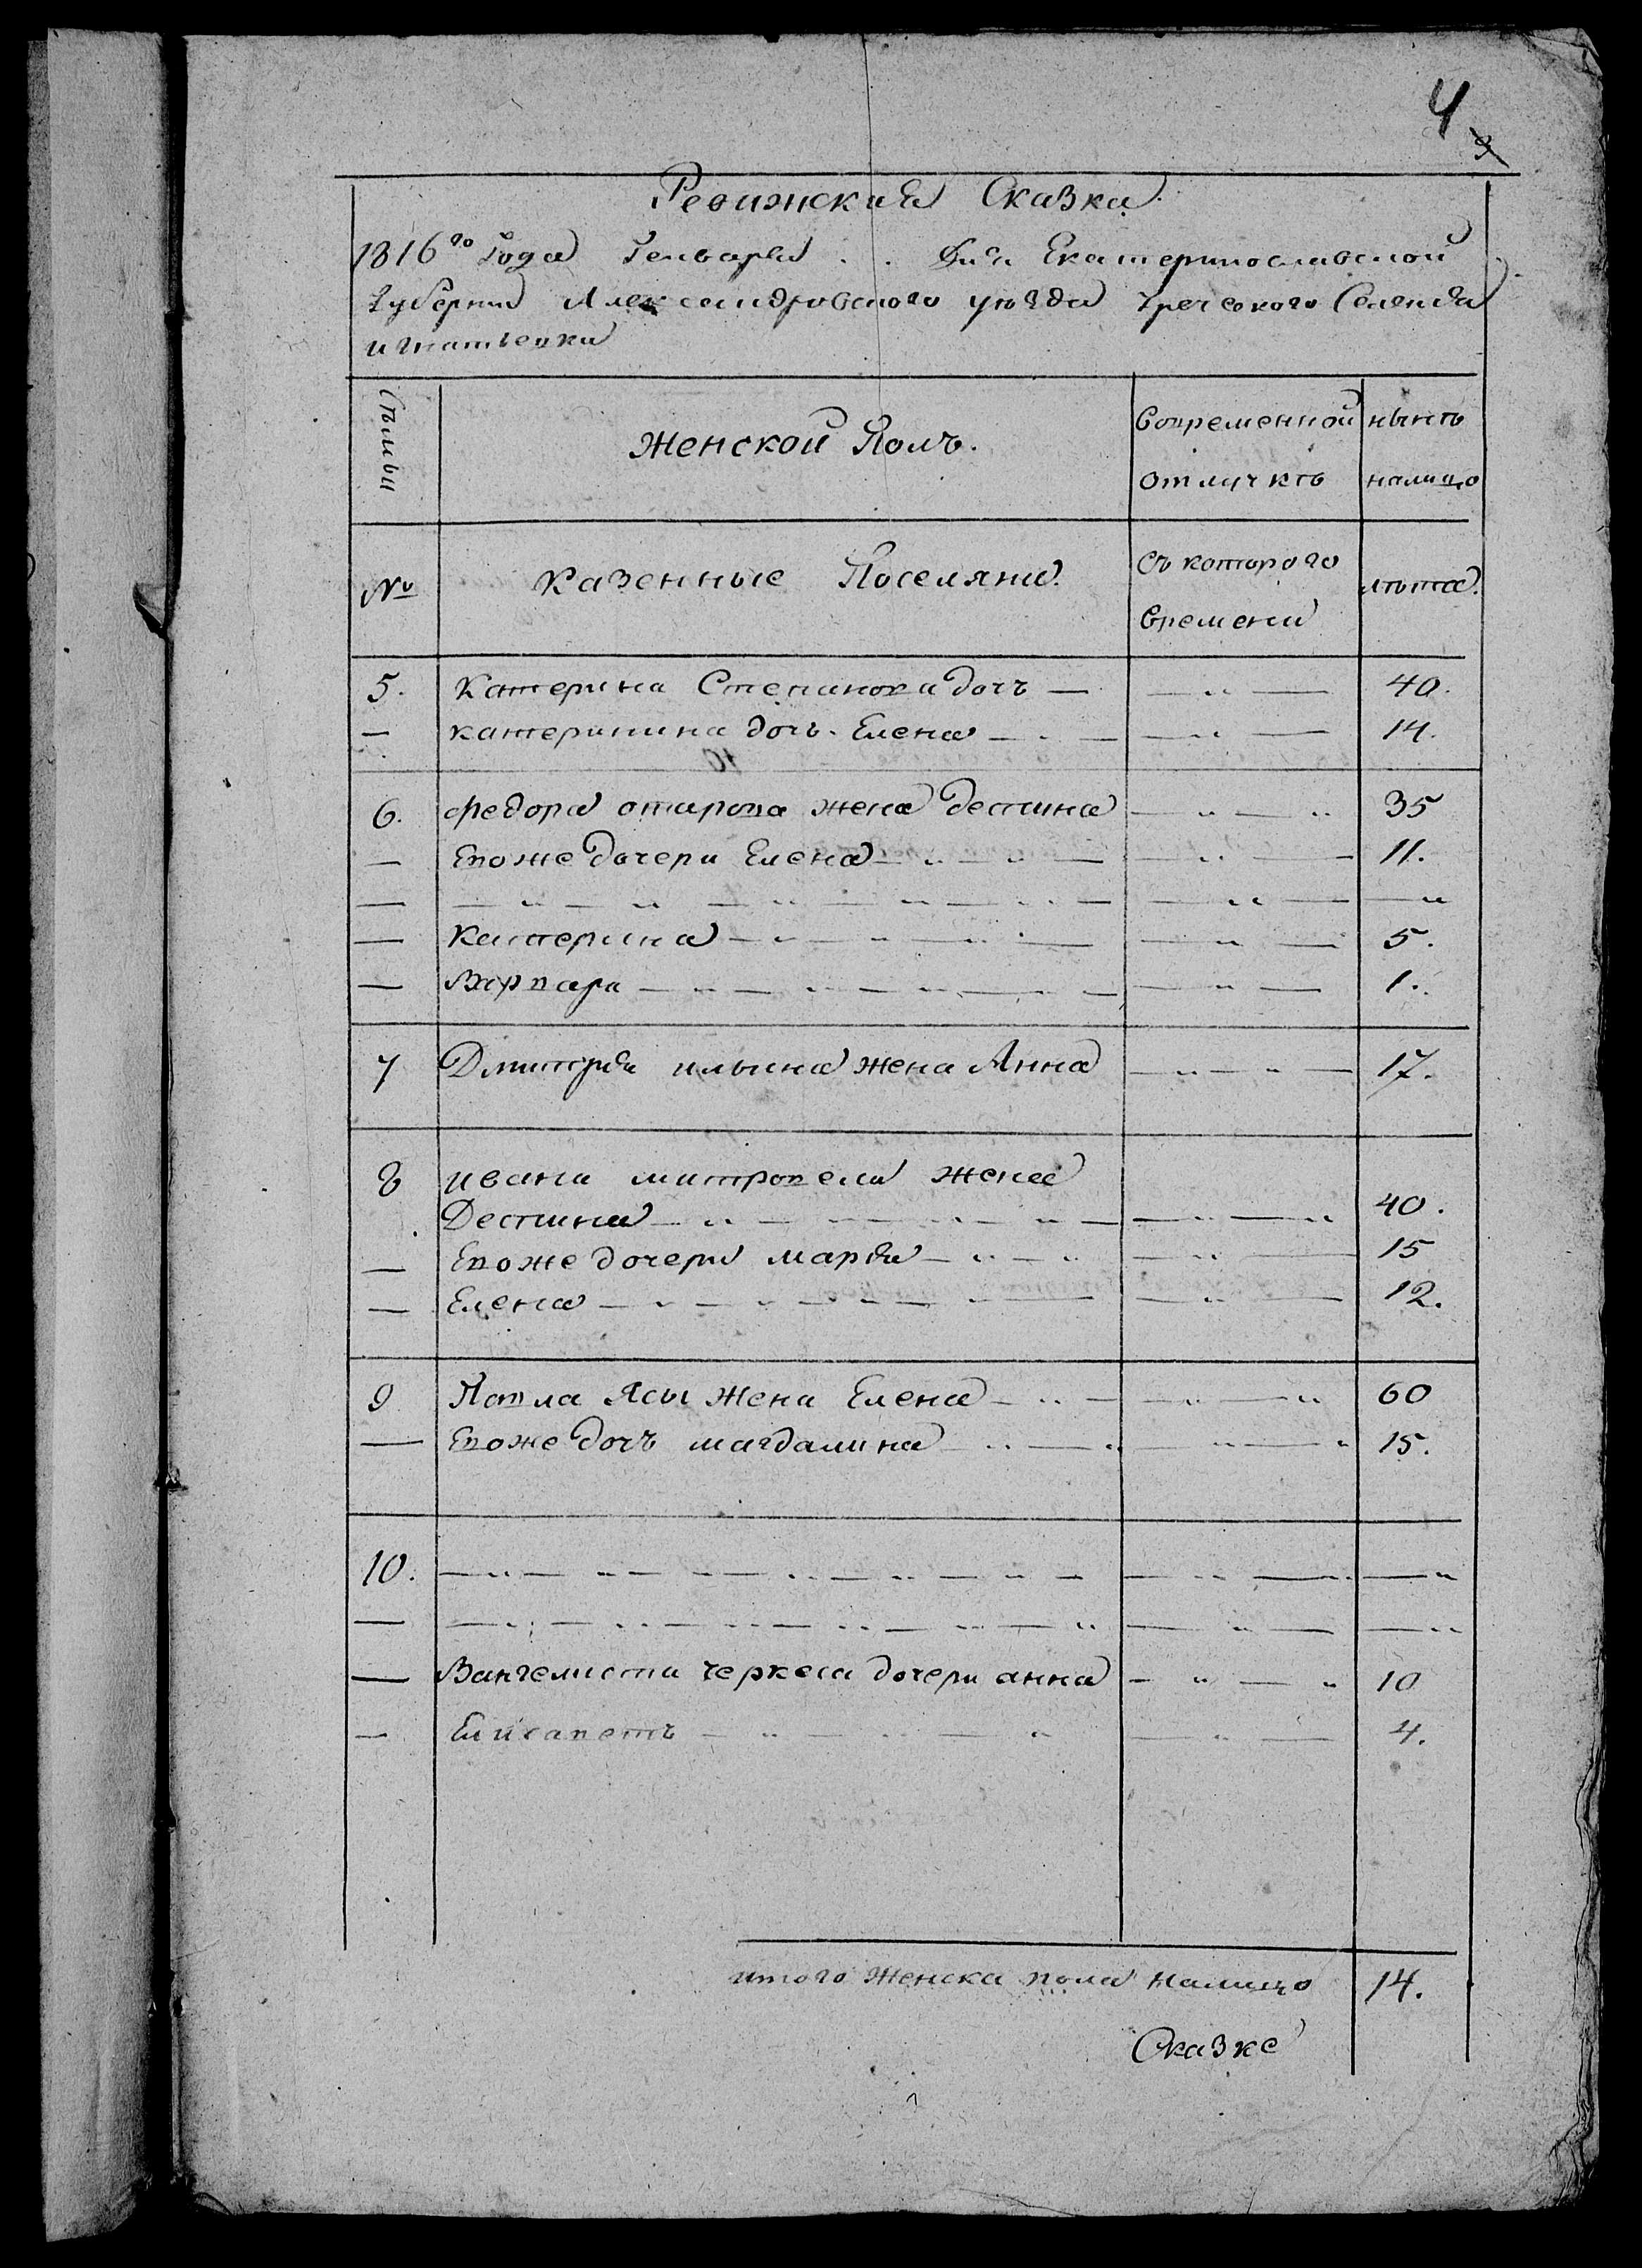 4
3
Ревижская Сказка.
1816го Года Генваря . . Дня Екатеринославской
Губернии Александровского уезда Греческого Селения
игнатьевки
Семьи | Женской Полъ. | Вовременной отлучкѣ | нынѣ налицо
№ | Казенные Поселяне. | Съ которого Времени | лѣта.
5. | Катерина Степанова дочъ — | — „ — | 40.
— | катеринина дочъ. Елена — . — | — „ — | 14.
6. | Федора отарова жена Деспина | — „ — „ | 35
— | Евоже дочери Елена — „ — „ — | — „ — | 11.
— | — „ — „ — „ — „ — „ — | — „ — | — „
— | Катерина — „ — „ — „ — | — „ — | 5.
— | Варвара — „ — „ — „ — | — „ — | 1.
7 | Дмитрія ильина жена Анна | — „ — „ — | 17.
8 | ивана митровели жена
Деспина — „ — „ — „ — | — „ — „ | 40.
— | Евоже дочери марія — „ — „ | — „ — | 15
— | Елена — „ — „ — „ — | — „ — | 12.
9 | Павла Ясы жена Елена — „ — | — „ — „ | 60
— | Евоже дочъ магдалина — „ — „ | „ — „ | 15.
10. | — „ — „ — „ — „ — „ — | — „ — „ | — „
— | — „ — „ — „ — „ — „ | — „ — | — „
— | Вангелиста черкеса дочери анна | — „ — „ | 10
— | Елисаветъ — „ — „ — „ | — „ — | 4.
итого женска пола налицо | 14.
Сказке